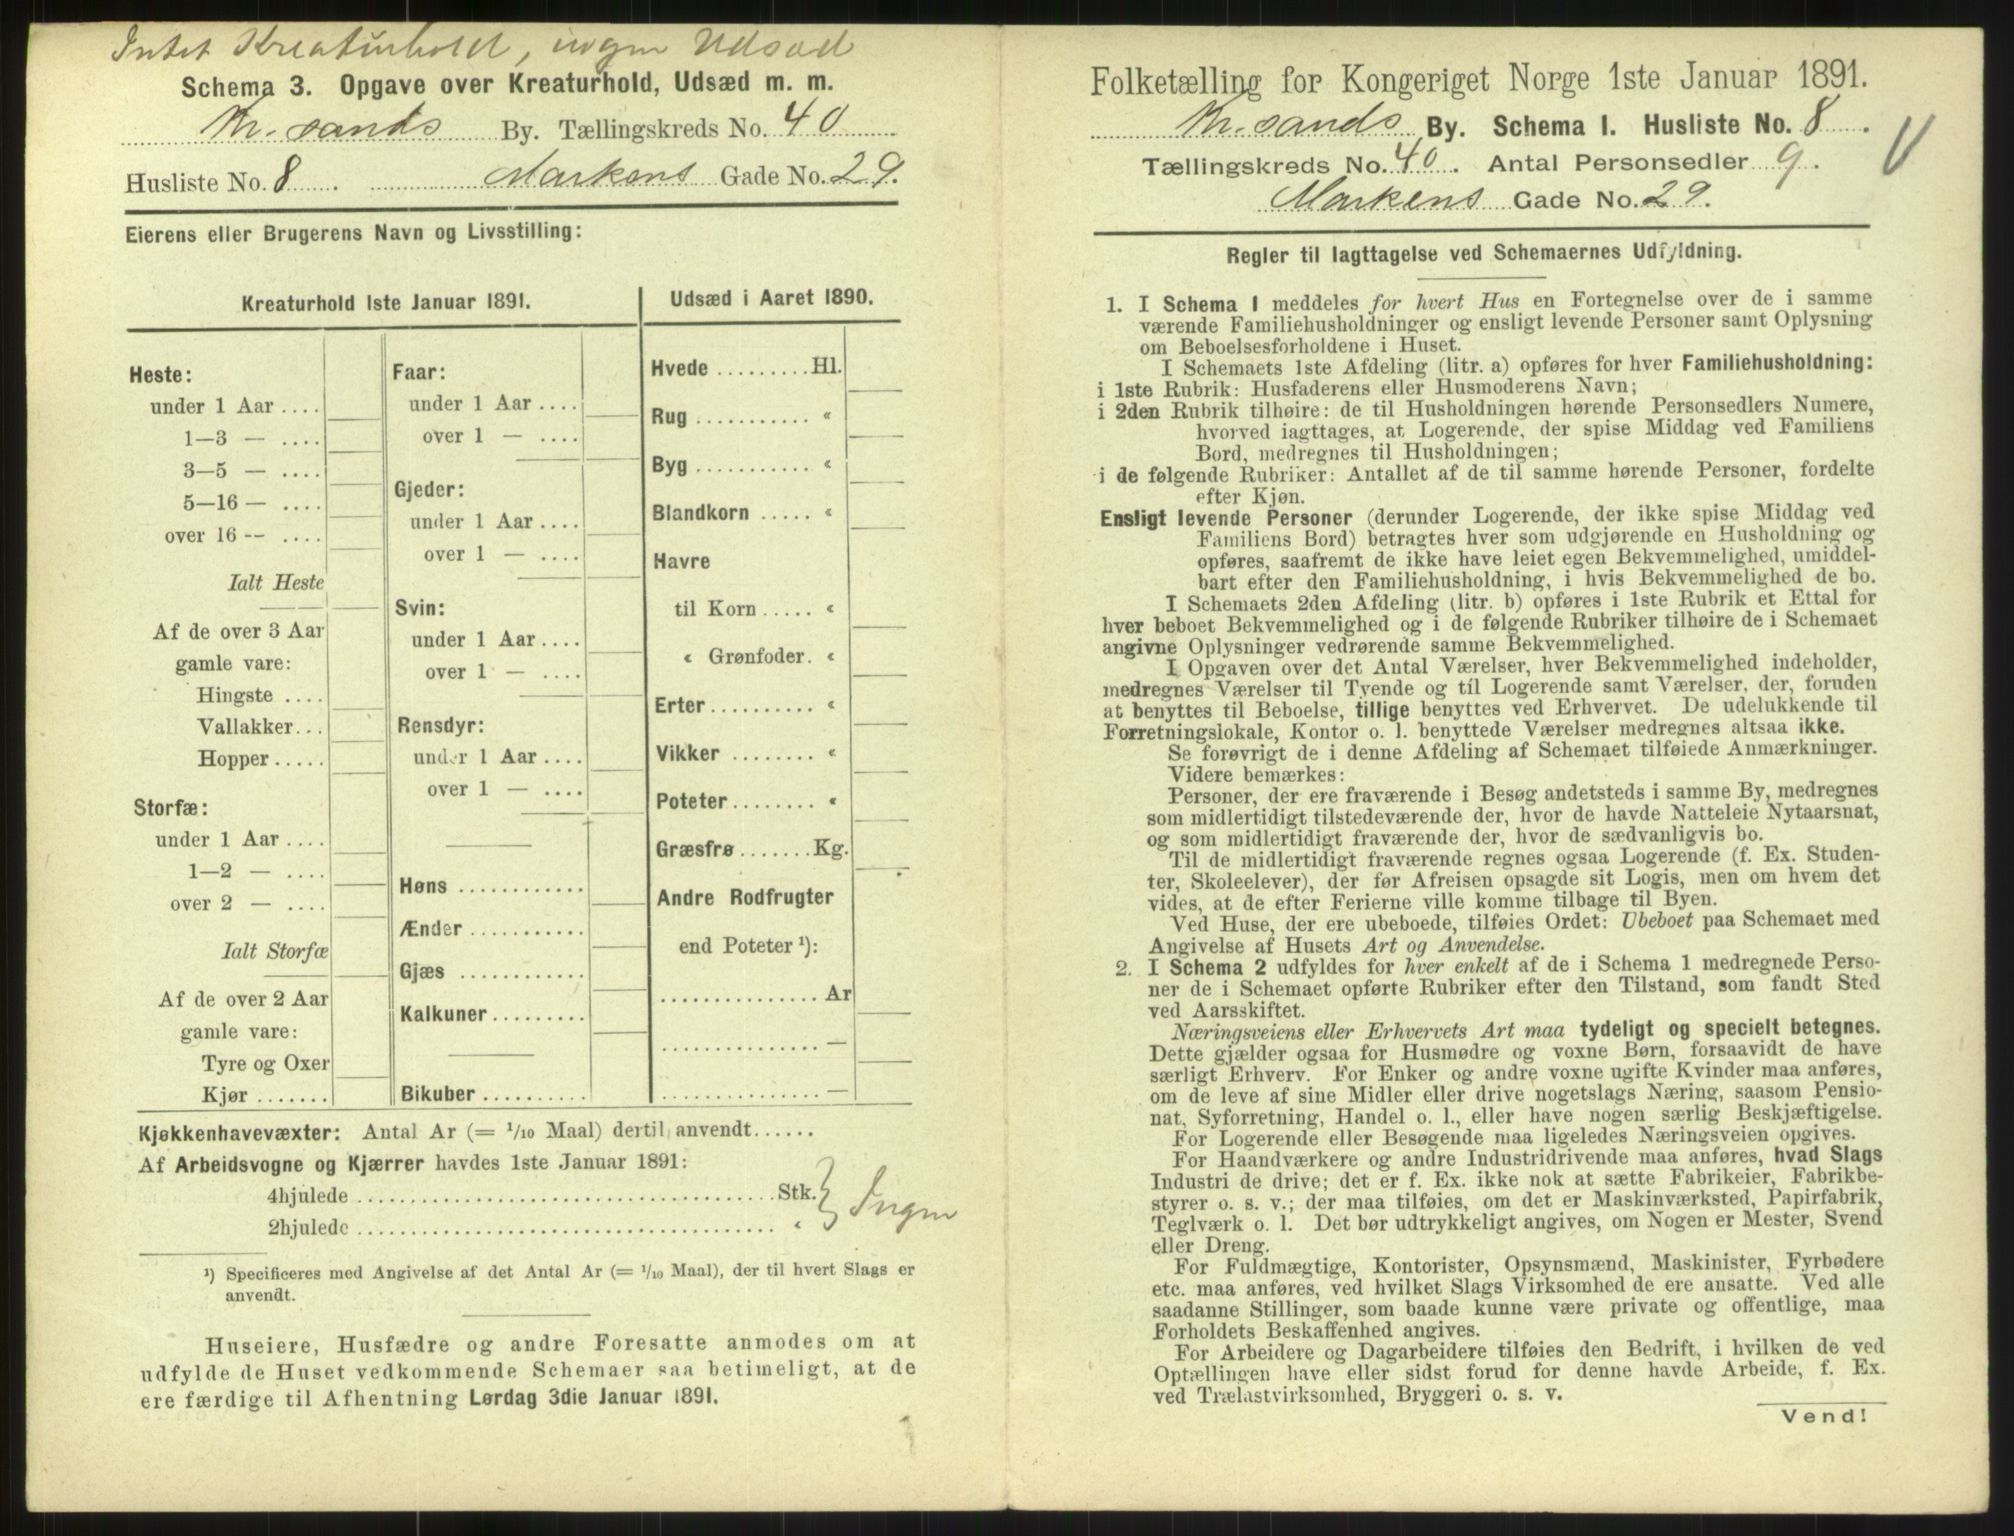 Intet Kreaturhold, ingen Udsæd
Schema 3. Opgave over Kreaturhold, Udsæd m. m.
Kr.sands By. Tællingskreds No. 40
Husliste No. 8 . Markens Gade No. 29.
Eierens eller Brugerens Navn og Livsstilling:
Kreaturhold 1ste Januar 1891.
Heste:
under 1 Aar ....
1—3 — ....
3—5 — ....
5—16 — ....
over 16 -- ....
Ialt Heste
Af de over 3 Aar
gamle vare:
Hingste ....
Vallakker...
Hopper.....
Storfæ:
under 1 Aar ....
1—2 — ....
over 2 — ....
Ialt Storfæ
Af de over 2 Aar
gamle vare:
Tyre og Oxer
Kjør .......
Faar:
under 1 Aar ....
over 1 — ....
Gjeder:
under 1 Aar ....
over 1 — ....
Svin:
under 1 Aar ....
over 1 — ....
Rensdyr:
under 1 Aar ....
over 1 — ....
Høns ............
Ænder ...........
Gjæs ............
Kalkuner.........
Bikuber ..........
Udsæd i Aaret 1890.
Hvede .........Hl.
Rug ........... “
Byg ........... “
Blandkorn ..... “
Havre
til Korn ..... “
“ Grønfoder. “
Erter.......... “
Vikker ........ “
Poteter........ “
Græsfrø .......Kg.
Andre Rodfrugter
end Poteter ¹):
............... Ar
............... —
............... —
Kjøkkenhavevæxter: Antal Ar (= 1/10 Maal) dertil anvendt......
Af Arbeidsvogne og Kjærrer havdes 1ste Januar 1891:
4hjulede ........................................Stk. } Ingen
2hjulede ........................................ “
¹) Specificeres med Angivelse af det Antal Ar (= 1/10 Maal), der til hvert Slags er
anvendt.
Huseiere, Husfædre og andre Foresatte anmodes om at
udfylde de Huset vedkommende Schemaer saa betimeligt, at de
ere færdige til Afhentning Lørdag 3die Januar 1891.
Folketælling for Kongeriget Norge 1ste Januar 1891.
Kr.sands By. Schema I. Husliste No. 8 .
Tællingskreds No. 40 . Antal Personsedler 9 .
Markens Gade No. 29.
Regler til Iagttagelse ved Schemaernes Udfyldning.
1. I Schema 1 meddeles for hvert Hus en Fortegnelse over de i samme
værende Familiehusholdninger og ensligt levende Personer samt Oplysning
om Beboelsesforholdene i Huset.
I Schemaets 1ste Afdeling (litr. a) opføres for hver Familiehusholdning:
i 1ste Rubrik: Husfaderens eller Husmoderens Navn;
i 2den Rubrik tilhøire: de til Husholdningen hørende Personsedlers Numere,
hvorved iagttages, at Logerende, der spise Middag ved Familiens
Bord, medregnes til Husholdningen;
i de følgende Rubriker: Antallet af de til samme hørende Personer, fordelte
efter Kjøn.
Ensligt levende Personer (derunder Logerende, der ikke spise Middag ved
Familiens Bord) betragtes hver som udgjørende en Husholdning og
opføres, saafremt de ikke have leiet egen Bekvemmelighed, umiddel-
bart efter den Familiehusholdning, i hvis Bekvemmelighed de bo.
I Schemaets 2den Afdeling (litr. b) opføres i 1ste Rubrik et Ettal for
hver beboet Bekvemmelighed og i de følgende Rubriker tilhøire de i Schemaet
angivne Oplysninger vedrørende samme Bekvemmelighed.
I Opgaven over det Antal Værelser, hver Bekvemmelighed indeholder,
medregnes Værelser til Tyende og til Logerende samt Værelser, der, foruden
at benyttes til Beboelse, tillige benyttes ved Erhvervet. De udelukkende til
Forretningslokale, Kontor o. l. benyttede Værelser medregnes altsaa ikke.
Se forøvrigt de i denne Afdeling af Schemaet tilføiede Anmærkninger.
Videre bemærkes:
Personer, der ere fraværende i Besøg andetsteds i samme By, medregnes
som midlertidigt tilstedeværende der, hvor de havde Natteleie Nytaarsnat,
og som midlertidigt fraværende der, hvor de sædvanligvis bo.
Til de midlertidigt fraværende regnes ogsaa Logerende (f. Ex. Studen-
ter, Skoleelever), der før Afreisen opsagde sit Logis, men om hvem det
vides, at de efter Ferierne ville komme tilbage til Byen.
Ved Huse, der ere ubeboede, tilføies Ordet: Ubeboet paa Schemaet med
Angivelse af Husets Art og Anvendelse.
2. I Schema 2 udfyldes for hver enkelt af de i Schema 1 medregnede Perso-
ner de i Schemaet opførte Rubriker efter den Tilstand, som fandt Sted
ved Aarsskiftet.
Næringsveiens eller Erhvervets Art maa tydeligt og specielt betegnes.
Dette gjælder ogsaa for Husmødre og voxne Børn, forsaavidt de have
særligt Erhverv. For Enker og andre voxne ugifte Kvinder maa anføres,
om de leve af sine Midler eller drive nogetslags Næring, saasom Pensio-
nat, Syforretning, Handel o. l., eller have nogen særlig Beskjæftigelse.
For Logerende eller Besøgende maa ligeledes Næringsveien opgives.
For Haandværkere og andre Industridrivende maa anføres, hvad Slags
Industri de drive; det er f. Ex. ikke nok at sætte Fabrikeier, Fabrikbe-
styrer o. s. v.; der maa tilføies, om det er Maskinværksted, Papirfabrik,
Teglværk o. l. Det bør udtrykkeligt angives, om Nogen er Mester, Svend
eller Dreng.
For Fuldmægtige, Kontorister, Opsynsmænd, Maskinister, Fyrbødere
etc. maa anføres, ved hvilket Slags Virksomhed de ere ansatte. Ved alle
saadanne Stillinger, som baade kunne være private og offentlige, maa
Forholdets Beskaffenhed angives.
For Arbeidere og Dagarbeidere tilføies den Bedrift, i hvilken de ved
Optællingen have eller sidst forud for denne havde Arbeide, f. Ex.
ved Trælastvirksomhed, Bryggeri o. s. v.
Vend!